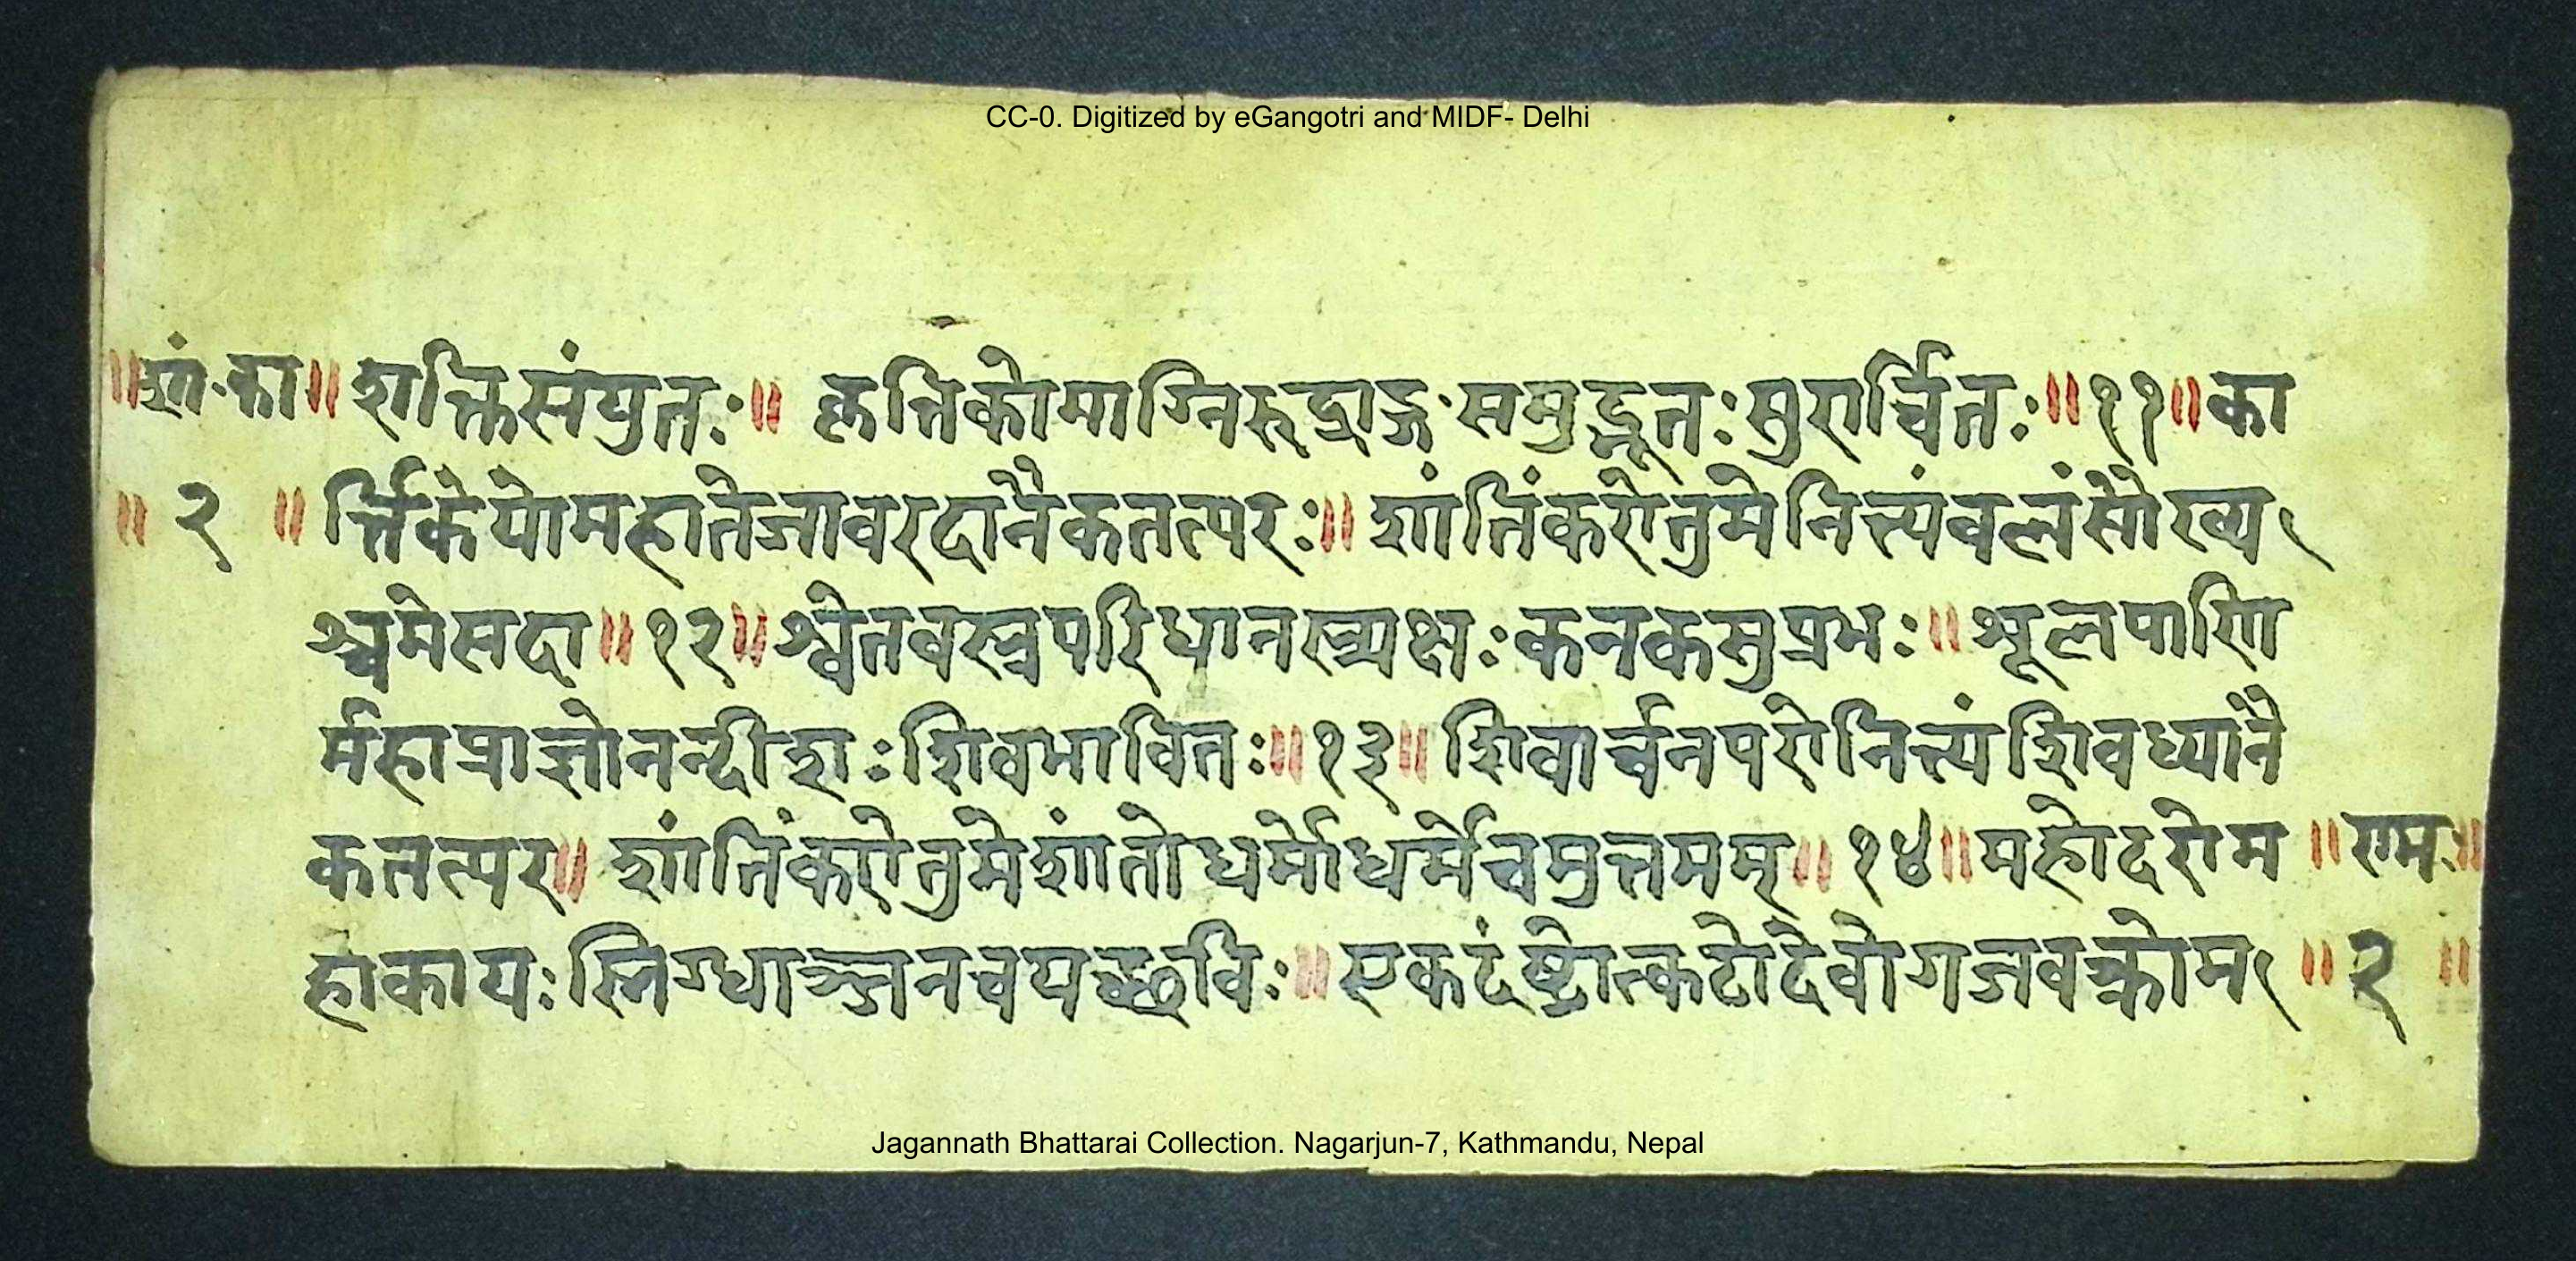 CC-0. Digitized by eGangotri and MIDF- Delhi
॥शां॰का॥ शक्तिसंयुतः॥ कृत्तिकोमाग्निरुद्राङ्ग॰समुद्भूतःसुरार्च्चितः॥११॥का
॥ २ ॥ र्त्तिकेयोमहातेजावरदानैकतत्परः॥ शांतिंकरोतुमेनित्यंवलंसौख्य
श्चमेसदा॥१२॥श्वेतवस्त्रपरिधानस्त्र्यक्षःकनकसुप्रभः॥ शूलपाणि
र्महाप्राज्ञोनन्दीशःशिवभावितः॥१३॥ शिवार्च्चनपरोनित्यंशिवध्यानै
कतत्पर॥ शांतिंकरोतुमेशांतोधर्मोधर्मेचमुत्तमम्॥ १४॥महोदरोम ॥राम॥
हाकायःस्निग्धाञ्जनचयच्छविः॥ एकदंष्ट्रोत्कटोदेवोगजवक्त्रोम ॥ २ ॥
Jagannath Bhattarai Collection. Nagarjun-7, Kathmandu, Nepal